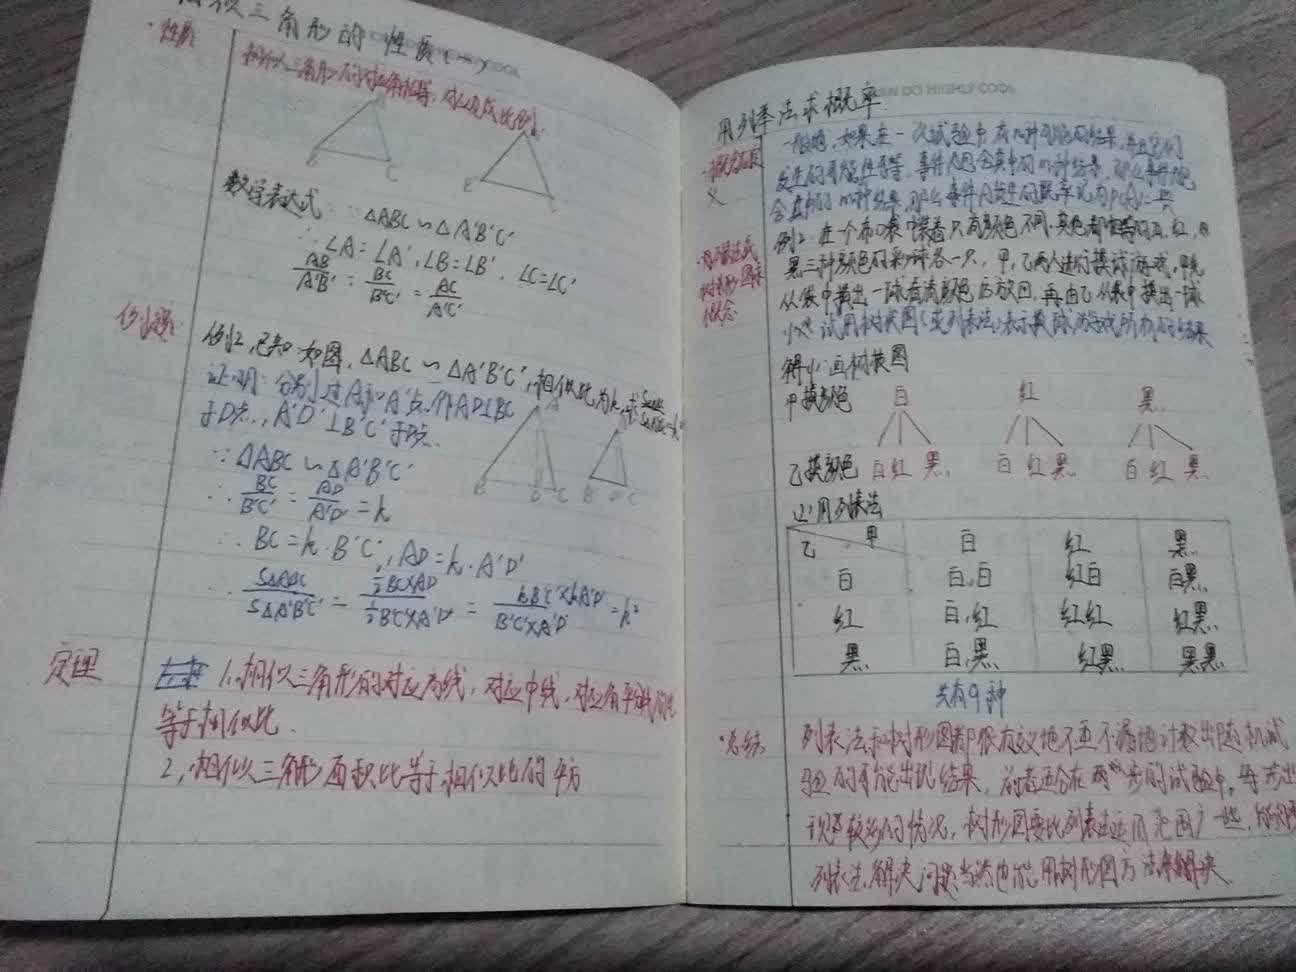 相似三角形的性质(一)
·性质
相似三角形的对应角相等，对应边成比例.
A
B
C
E
数学表达式：∵△ABC∽△A'B'C'
∴∠A=∠A',∠B=∠B',∠C=∠C'
AB/A'B' = BC/B'C' = AC/A'C'
例题：
例2，已知如图，△ABC∽△A'B'C',相似比为k,求
证明：分别过A和A'点，作AD⊥BC
于D点，A'D'⊥B'C'于D'点
A
B
D
C
B
D
C
∵△ABC∽△A'B'C'
∴ BC/B'C' = AD/A'D' = k
∴ BC=k·B'C',AD=k·A'D'
∴ S△ABC/S△A'B'C' = ½BC×AD/½B'C'×A'D' = kB'C'×kA'D'/B'C'×A'D' = k²
定理
1、相似三角形的对应高线，对应中线，对应角平分线的比
等于相似比.
2，相似三角形面积比等于相似比的平方
CAN DO HIGHLY COOL
用列举法求概率.
·概率的定
义
一般地，如果在一次试验中，有n种可能的结果，并且它们
发生的可能性相等，事件A包含其中的m种结果，那么事件A包
含其中的m种结果，那么事件A发生的概率记为P(A)=m/n
树形图
概念
例2：在一个布口袋中装着只有颜色不同，其他都相等的白，红，
黑三种颜色的彩球各一只，甲，乙两人进行摸球游戏，甲先
从袋中摸出一球看清颜色后放回，再由乙从袋中摸出一球
(1)试用树状图(或列表法)表示摸球游戏所有的结果
解(1)画树状图
甲摸颜色 白 红 黑
乙摸颜色 白 红 黑 白 红 黑 白 红 黑
(2)用列表法
乙 甲 白 红 黑
白 白,白 红白 白黑
红 白,红 红红 红黑
黑 白,黑 红黑 黑黑
共有9种
·总结
列表法和树形图都很有效地不重不漏地计数出随机试
验的可能出现结果，前者适合在两步的试验中，每步出
现较多的情况，树形图要比列表法运用范围广一些，
列表法解决问题当然也能用树形图方法来解决.